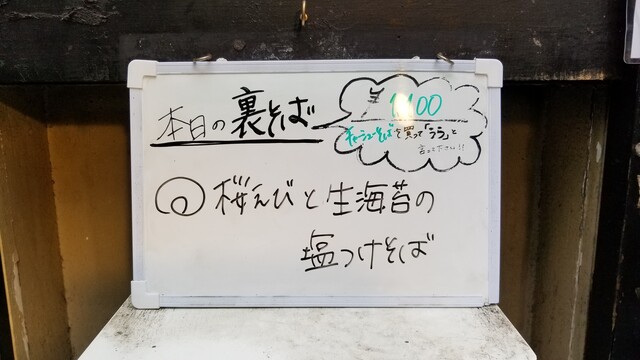 本日の裏そば
¥1100
チャーシューそばを買って「うら」と
言って下さい!!
桜えびと生海苔の
塩つけそば